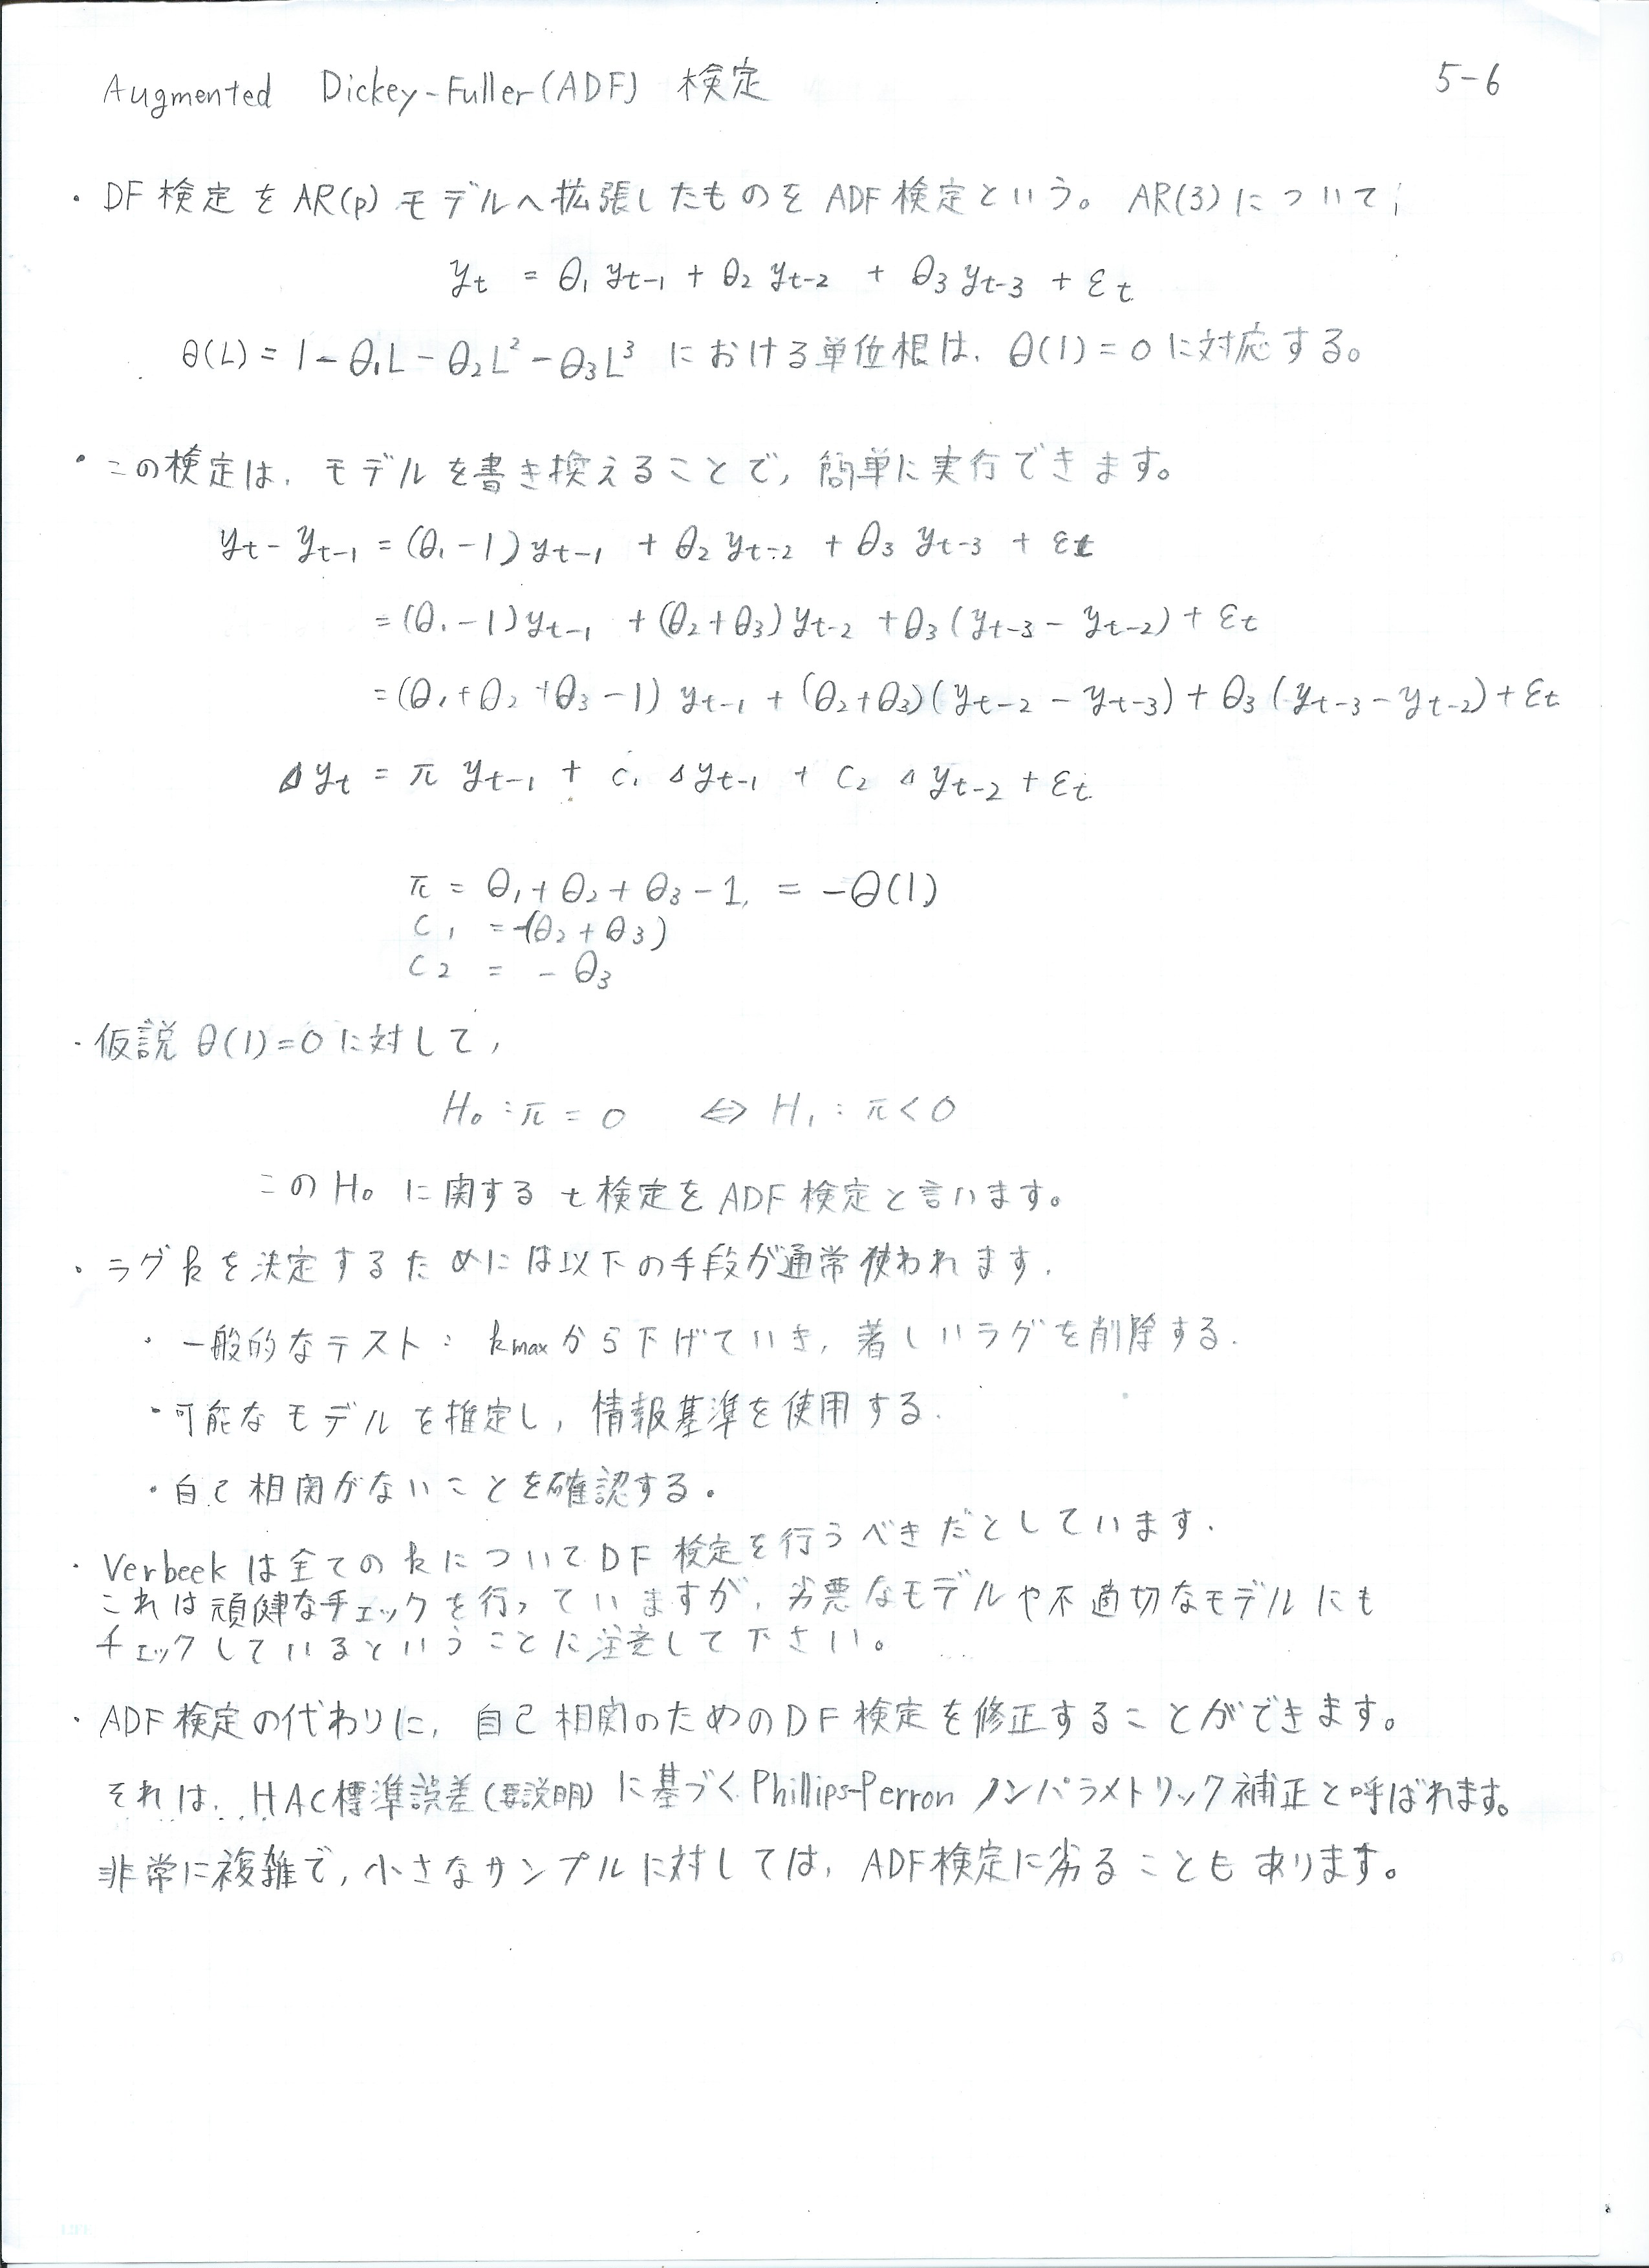 Augmented Dickey-Fuller(ADF) 検定 5-6
・DF検定をAR(p)モデルへ拡張したものをADF検定という。AR(3)について;
yₜ = θ₁ yₜ₋₁ + θ₂ yₜ₋₂ + θ₃ yₜ₋₃ + εₜ
θ(L) = 1 - θ₁L - θ₂L² - θ₃L³ における単位根は、θ(1) = 0 に対応する。
・この検定は、モデルを書き換えることで, 簡単に実行できます。
yₜ - yₜ₋₁ = (θ₁ - 1) yₜ₋₁ + θ₂ yₜ₋₂ + θ₃ yₜ₋₃ + εₜ
= (θ₁ - 1) yₜ₋₁ + (θ₂ + θ₃) yₜ₋₂ + θ₃ (yₜ₋₃ - yₜ₋₂) + εₜ
= (θ₁ + θ₂ + θ₃ - 1) yₜ₋₁ + (θ₂ + θ₃)(yₜ₋₂ - yₜ₋₃) + θ₃ (yₜ₋₃ - yₜ₋₂) + εₜ
Δyₜ = π yₜ₋₁ + c₁ Δyₜ₋₁ + c₂ Δyₜ₋₂ + εₜ
π = θ₁ + θ₂ + θ₃ - 1, = -θ(1)
c₁ = -(θ₂ + θ₃)
c₂ = - θ₃
・仮説 θ(1) = 0 に対して,
H₀ : π = 0 ⇔ H₁ : π < 0
このH₀ に関する t検定をADF検定と言います。
・ラグkを決定するためには以下の手段が通常使われます.
・一般的なテスト: kmaxから下げていき, 著しいラグを削除する.
・可能なモデルを推定し, 情報基準を使用する.
・自己相関がないことを確認する.
・Verbeekは全てのkについてDF検定を行うべきだとしています.
これは頑健なチェックを行っていますが, 劣悪なモデルや不適切なモデルにも
チェックしているということに注意して下さい。
・ADF検定の代わりに, 自己相関のためのDF検定を修正することができます。
それは、HAC標準誤差(要説明)に基づくPhillips-Perronノンパラメトリック補正と呼ばれます。
非常に複雑で, 小さなサンプルに対しては, ADF検定に劣ることもあります。
LIFE